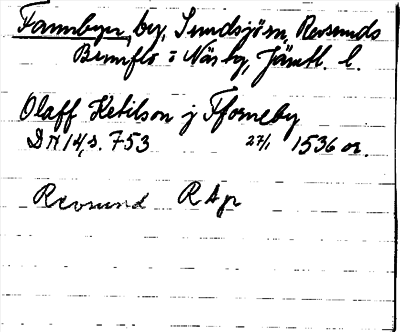 Fannbyn, by, Sundsjö sn, Revsunds
Brunflo o Näs tg, Jämtl. l.
Olaff Ketilson j Fforneby
DN 14, s. 753 27/1 1536 or.
Revsund RAp